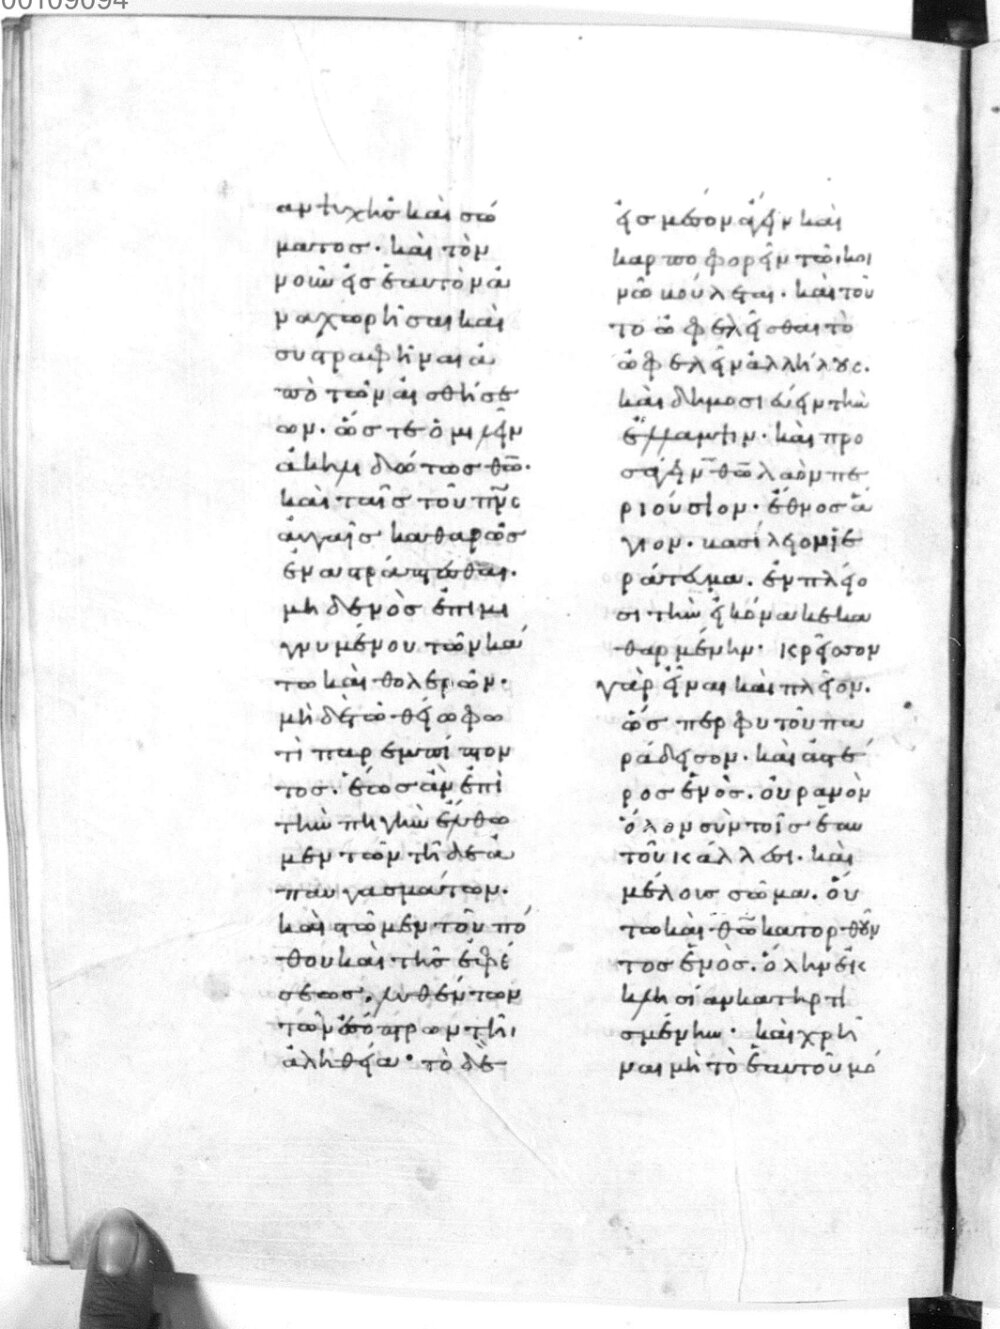 00109094
αν ψυχῆς καὶ σώ
ματος· καὶ τὸν
νοῦν εἰς ἑαυτὸν ἀ
ναχωρῆσαι καὶ
συστραφῆναι ἀ
πὸ τῶν αἰσθήσε
ων· ὥστε ὁμιλεῖν
ἀκηλιδώτως θῶ·
καὶ ταῖς τοῦ πνς
αὐγαῖς καθαρῶς
ἐναστράπτεσθαι·
μηδενὸς ἐπιμι
γνυμένου τῶν κά
τω καὶ θολερῶν·
μὴ δὲ τῶ θείω φω
τὶ παρεμπίπτον
τος· ἕως ἂν ἐπὶ
τὴν πηγὴν ἔλθω
μεν τῶν τῆδε ἀ
παυγασμάτων·
καὶ στῶμεν τοῦ πό
θου καὶ τῆς ἐφέ
σεως, λυθέντων
τῶν ἐσόπτρων τῆι
ἀληθεία· τὸ δὲ
εἰς μέσον ἄγειν καὶ
καρποφορεῖν τῶι κοι
νῶ βούλεται· καὶ τοῦ
το ὠφελεῖσθαι τὸ
ὠφελεῖν ἀλλήλους.
καὶ δημοσιεύειν τὴν
ἔλλαμψιν· καὶ προ
σάγειν θῶ λαὸν πε
ριούσιον· ἔθνος ἅ
γιον· βασίλειον ἱε
ράτευμα. ἐν πλείο
σι τὴν εἰκόνα κεκα
θαρμένην· κρεῖσσον
γὰρ εἶναι καὶ πλεῖον.
ὥσπερ φυτοῦ πα
ράδεισον· καὶ ἀστέ
ρος ἑνὸς. οὐρανὸν
ὅλον σὺν τοῖς ἑαυ
τοῦ κάλλεσι· καὶ
μέλους σῶμα. οὕ
τω καὶ θῶ κατορθοῦν
τος ἑνὸς. ὅλην ἐκ
κλησίαν κατηρτι
σμένην· καὶ χρῆ
ναι μὴ τὸ ἑαυτοῦ μό